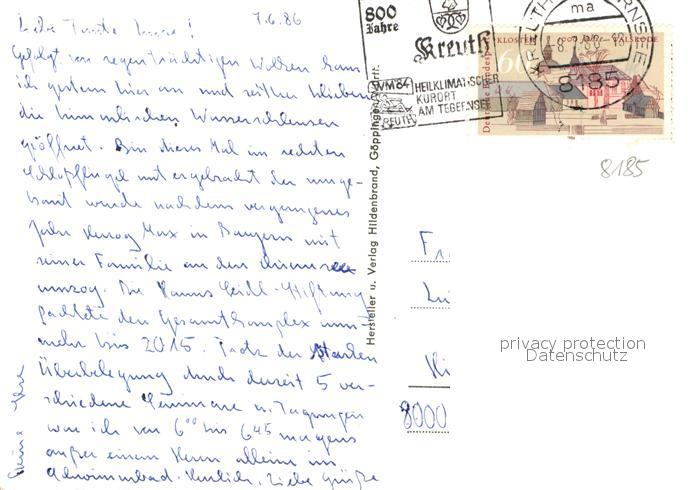 Liebe Tante Luise! 7.6.86
Gefolgt von regenträchtigen Wolken kam
ich gestern hier an und seither blieben
die himmlischen Wasserschleusen
geöffnet. Bin dieses Mal im rechten
Schloßflügel mit untergebracht der umge-
baut wurde nachdem vergangenes
Jahr Herzog Max in Bayern mit
seiner Familie an den
umzog. Die Hanns Seidl-Stiftung
pachtete den Gesamtkomplex nun-
mehr bis 2015. Trotz der starken
Überbelegung durch derzeit 5 ver-
schiedene Seminare u. Tagungen
war ich von 6⁰⁰ bis 6⁴⁵ morgens
außer einem Herrn allein im
Schwimmbad. Herzlich, liebe Grüße
Hersteller u. Verlag Hildenbrand, Göppingen
800
Jahre
Kreuth
WM'84
KREUTH
HEILKLIMATISCHER
KURORT
AM TEGERNSEE
ma
8185
KLOSTER WALSRODE
60
Deutsche Bundespost
8185
8000
privacy protection
Datenschutz